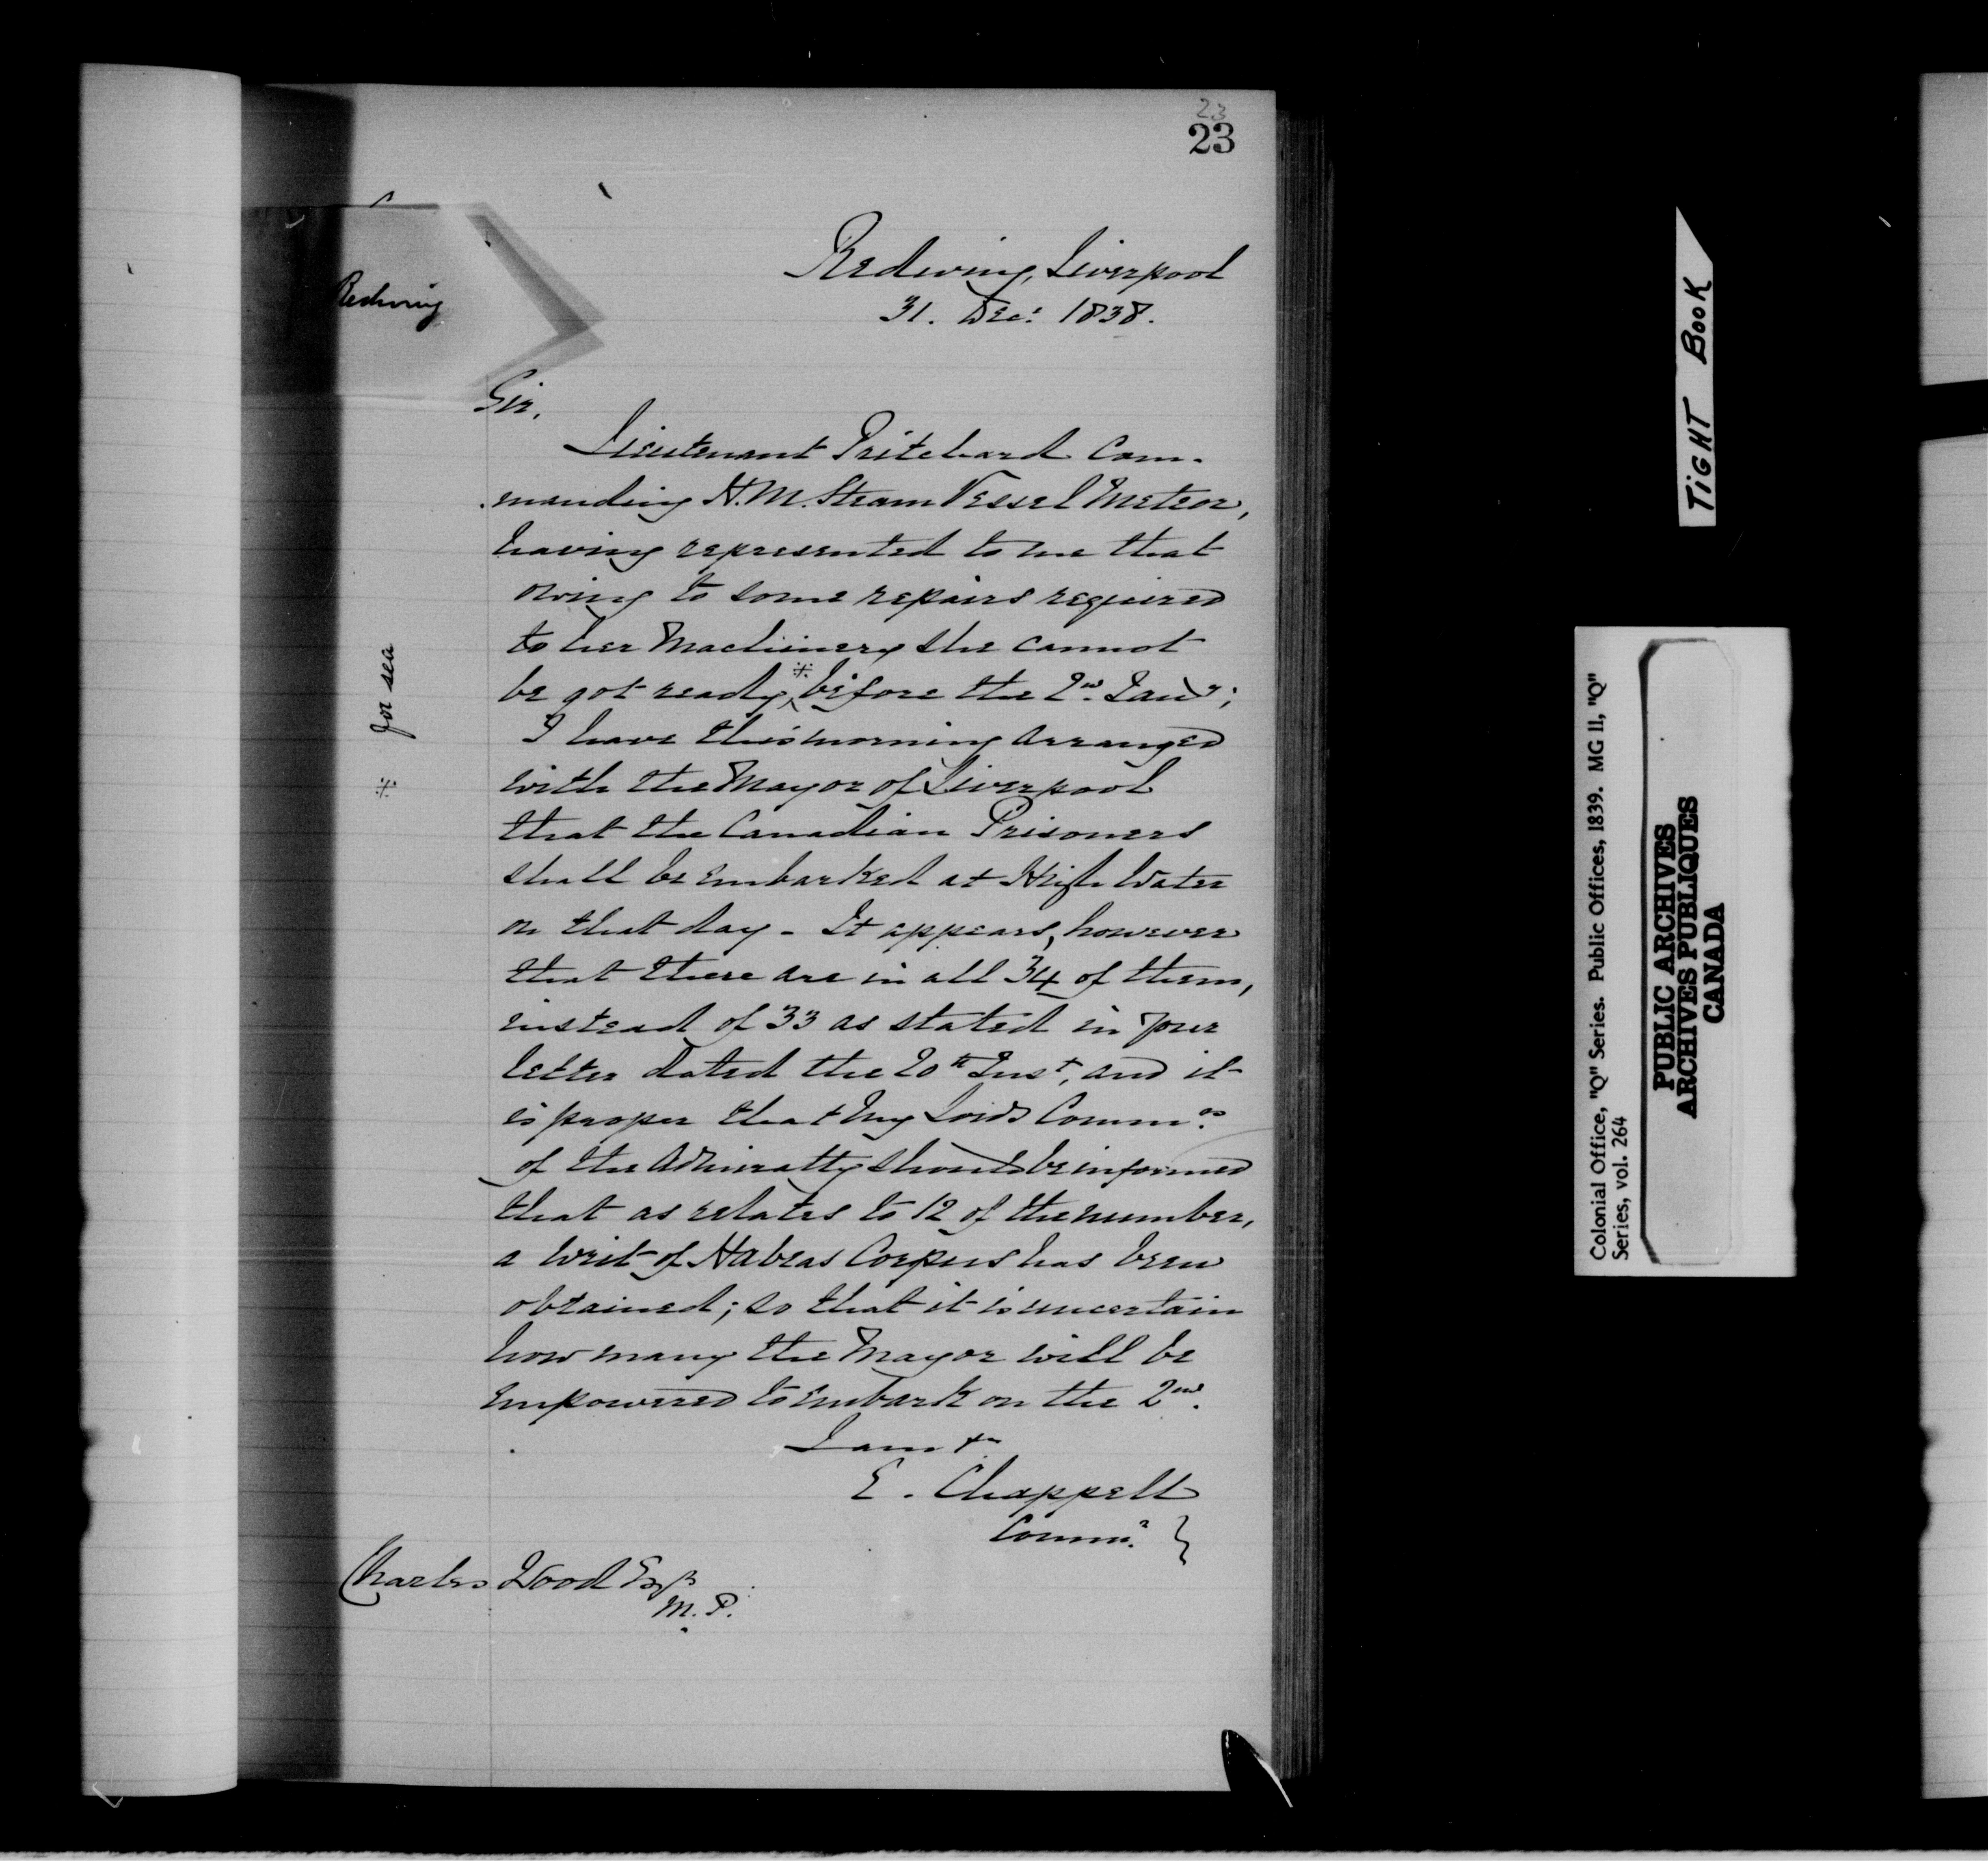 23
23
Redwing, Liverpool
31. Decr 1838.
Redwing
Sir,
Lieutenant Pritchard Com-
-manding H.M. Steam Vessel Meteor,
having represented to me that
owing to some repairs required
to her Machinery she cannot
be got ready ※ before the 2nd Jany;
※ for sea
I have this morning arranged
with the Mayor of Liverpool
that the Canadian Prisoners
shall be embarked at High Water
on that day - It appears, however
that there are in all 34 of them,
instead of 33 as stated in your
letter dated the 20th Inst, and it
is proper that my Lords Commrs
of the Admiralty should be informed
that as relates to 12 of the number,
a writ of Habeas Corpus has been
obtained; so that it is uncertain
how many the Mayor will be
empowered to embark on the 2nd.
I am &c
E. Chappell
Commr }
Charles Wood Esqr
M.P.
TIGHT BOOK
Colonial Office, "Q" Series. Public Offices, 1839. MG 11, "Q"
Series, vol. 264
PUBLIC ARCHIVES
ARCHIVES PUBLIQUES
CANADA